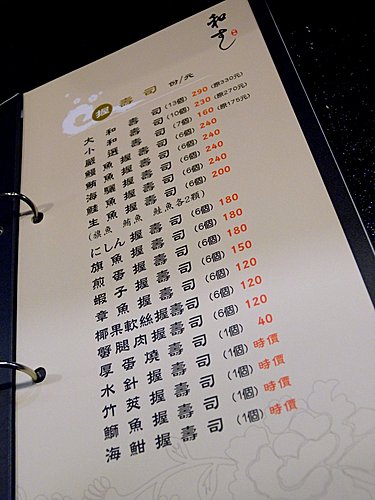 和す
握壽司 份/元
大和壽司 (13個) 290 (原330元)
小和壽司 (10個) 230 (原270元)
嚴選壽司 (7個) 160 (原175元)
鰻魚握壽司 (6個) 240
鮪魚握壽司 (6個) 240
海膽握壽司 (6個) 240
鮭魚握壽司 (6個) 240
生魚握壽司 (6個) 200
(旗魚 鮪魚 鮭魚各2顆)
にしん握壽司 (6個) 180
旗魚握壽司 (6個) 180
煎蛋握壽司 (6個) 180
蝦子握壽司 (6個) 150
章魚握壽司 (6個) 120
椰果軟絲握壽司 (6個) 120
蟹腿肉握壽司 (6個) 120
厚蛋燒壽司 (1個) 40
水針握壽司 (1個) 時價
竹筴握壽司 (1個) 時價
鰤魚握壽司 (1個) 時價
海魽握壽司 (1個) 時價